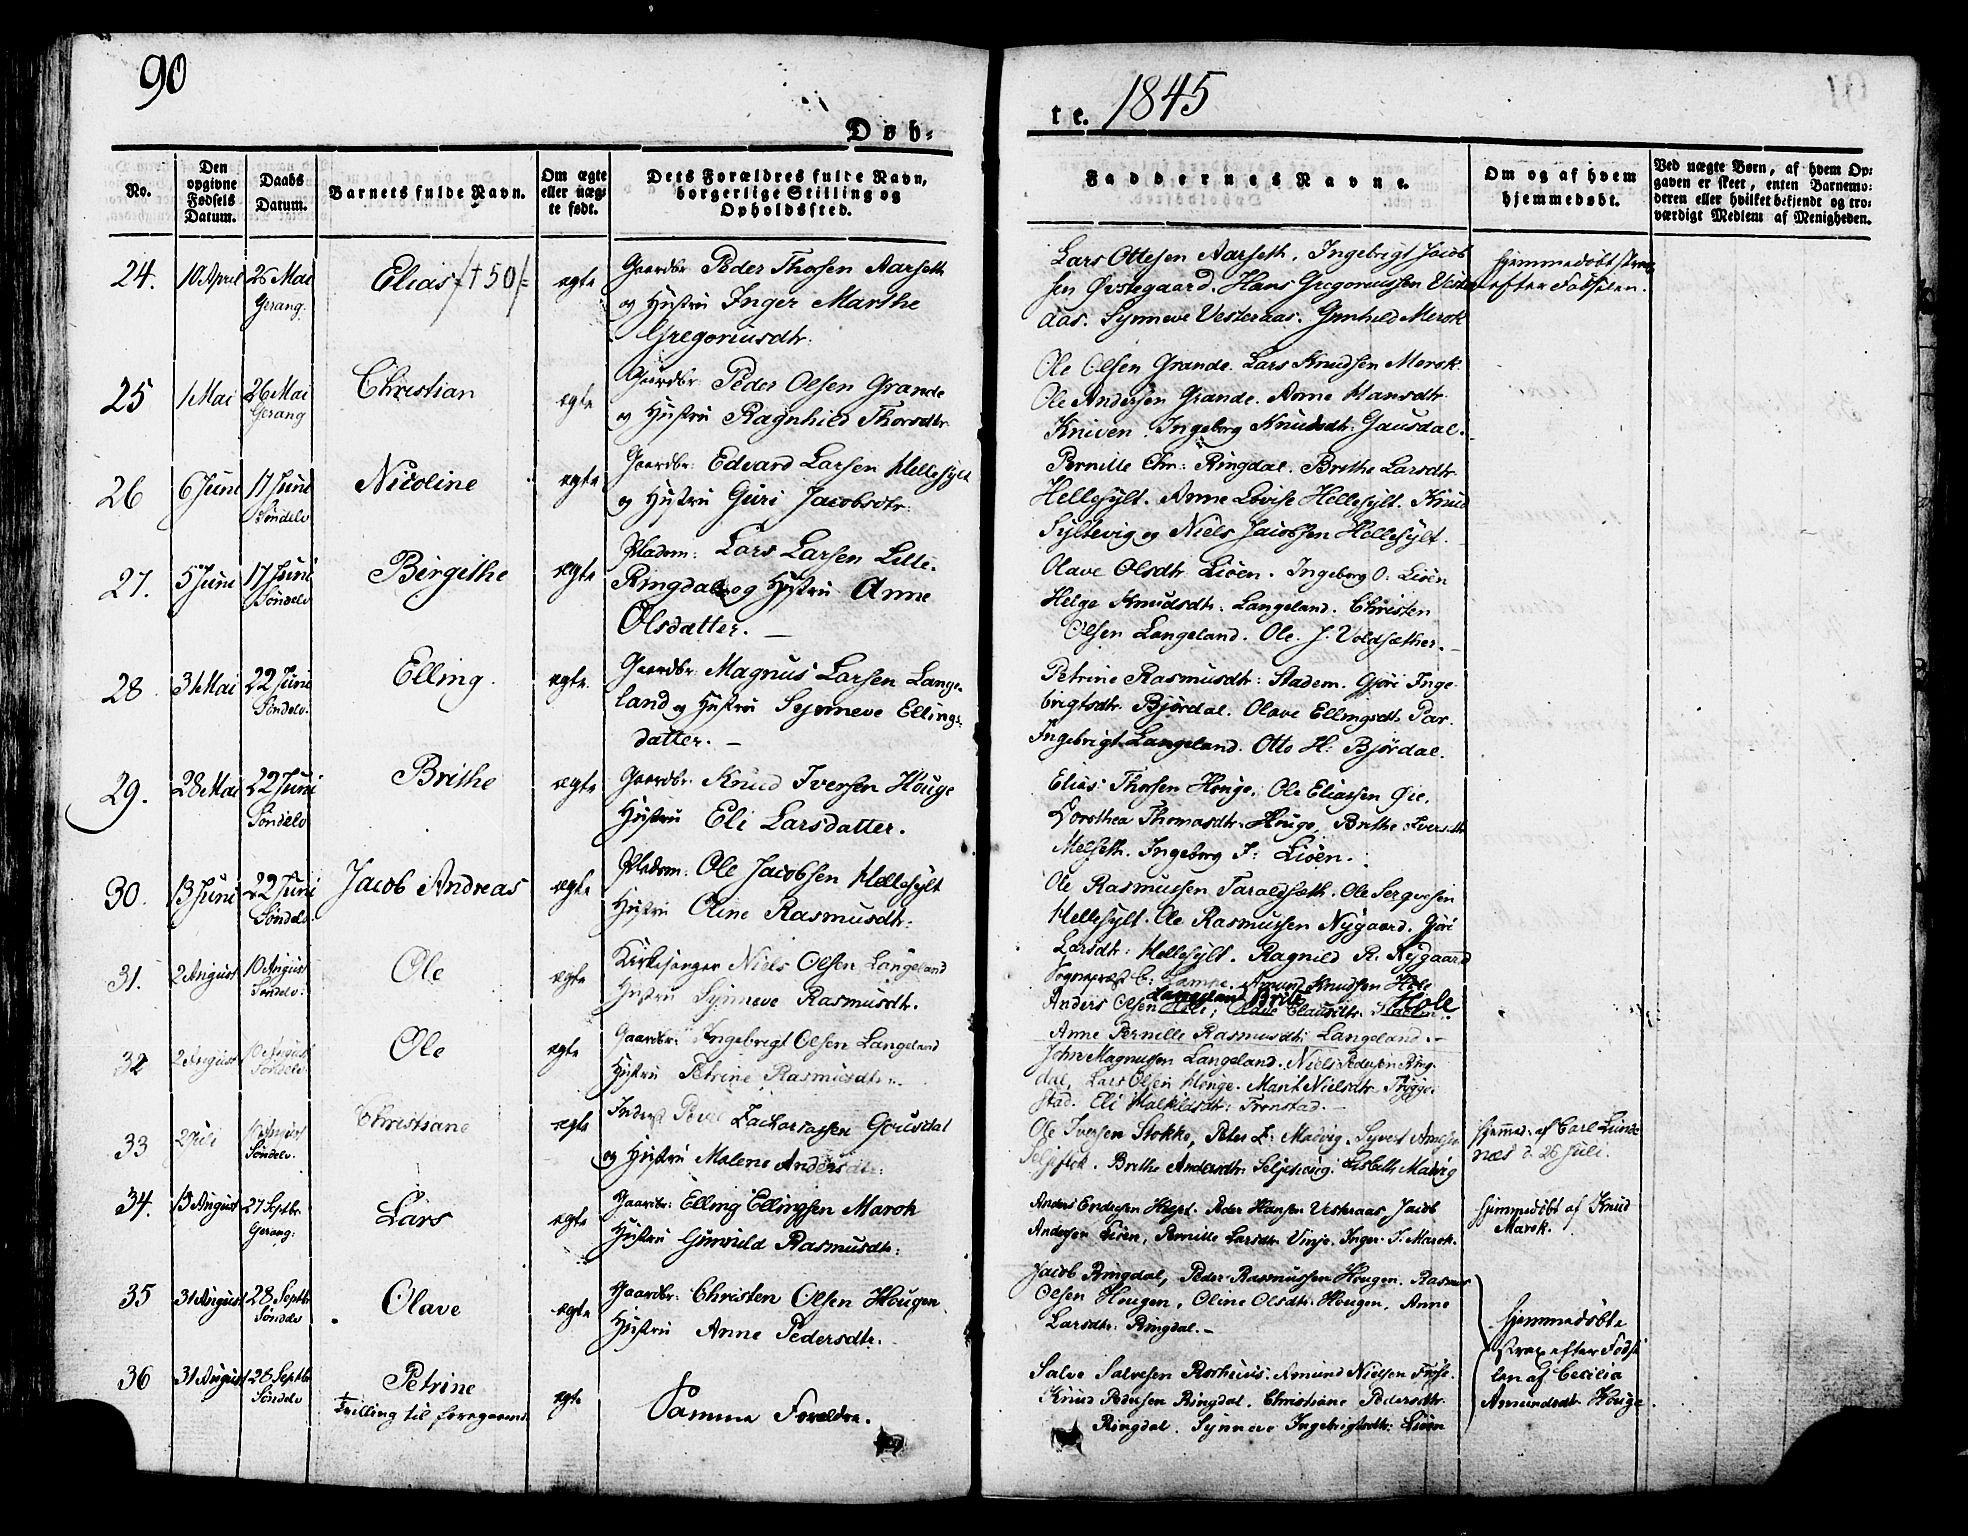 90
Døb-
te. 1845
No.
Den opgivne Fødsels Datum.
Daabs Datum.
Barnets fulde Navn.
Om ægte eller uæg-
te født.
Dets Forældres fulde Navn,
borgerlige Stilling og
Opholdssted.
Faddernes Navne.
Om og af hvem
hjemmedøbt.
Ved uægte Børn, af hvem Op-
gaven er skeet, enten Barnemo-
deren eller hvilket bekjendt og tro-
værdigt Medlem af Menigheden.
24. 10 April 26 Mai Elias /†50/ ægte Gaardbr: Peder Thorsen Aarseth
Gerang. og Hustru Inger Marthe
Gregoriusdtr:
Lars Ottesen Aarseth. Ingebrigt Jacob
sen Østegaard. Hans Gregoriussen Vester
aas. Synneve Vesteraas. Gunhild Merok
Hjemmedøbt strax
efter Fødselen.
25 1 Mai 26 Mai Christian ægte Gaardbr: Peder Olsen Grande
Gerang og Hustru Ragnhild Thorsdtr
Ole Olsen Grande. Lars Knudsen Merok.
Ole Andersen Grande. Anne Hansdtr
Kniven. Ingeborg Knudsdtr: Gausdal.
26 6 Juni 17 Juni Nicoline ægte Gaardbr: Edvard Larsen Hellesylt
Søndelv og Hustru Guri Jacobsdtr:
Pernille Chr: Ringdal. Brithe Larsdtr
Hellesylt. Anne Lovise Hellesylt. Knud
Syltevig og Niels Jacobsen Hellesylt.
27. 5 Juni 17 Juni Birgithe ægte Pladsm: Lars Larsen Lille-
Søndelv Ringdal og Hustru Anne
Olsdatter. —
Olave Olsdtr Liøen. Ingeborg O: Liøen
Helge Knudsdtr: Langeland. Christen
Olsen Langeland. Ole. J. Voldsæther. —
28. 31 Mai 22 Juni Elling. ægte. Gaardbr: Magnus Larsen Lange-
Søndelv. land og Hustru Synneve Ellings-
datter. —
Petrine Rasmusdtr: Stadem. Gjøri Inge-
brigtsdtr. Bjørdal. Olave Ellingsdtr. Par.
Ingebrigt Langeland. Otto H: Bjørdal.
29. 28 Mai 22 Juni Brithe ægte Gaardbr: Knud Iversen Houge
Søndelv Hustru Eli Larsdatter.
Elias Thorsen Houge. Ole Eliassen Øie.
Dorothea Thomasdtr. Houge, Brithe Iversdtr
Melseth. Ingeborg J: Liøen.
30. 13 Juni 22 Juni Jacob Andreas ægte Pladsm: Ole Jacobsen Hellesylt
Søndelv. Hustru Oline Rasmusdtr:
Ole Rasmussen Taraldsæth. Ole
Hellesylt. Ole Rasmussen Nygaard. Gjøri
Larsdtr: Hellesylt. Ragnild R. Nygaard
31. 2 August 10 August Ole ægte Kirkesanger Niels Olsen Langeland
Søndelv. Hustru Synneve Rasmusdtr.
Sognepræst C: Lampe. Amund Knudsen Hole
Anders Olsen Langeland Brite Hole
Anne Pernille Rasmusdtr: Langeland. —
32 2 August 10 August Ole ægte Gaardbr: Ingebrigt Olsen Langeland
Søndelv Hustru Petrine Rasmusdtr:
John Magnussen Langeland. Niels Pedersen Ring-
dal, Lars Olsen Houge. Marit Nielsdtr. Trygge-
stad. Eli Halkildsdtr: Tronstad. —
33 2 Juli 10 August Christiane ægte Inderst Povel Zachariassen Gousdal
Søndelv. og Hustru Malene Andersdtr:
Ole Iversen Stokke, Peter L: Madvig. Syvert
Seljeflot. Brithe Andersdtr: Seljevig. Lisbeth Madvig
Hjemmed. af Carl Lunde
næs d. 26 Juli.
34. 13 August 27 Septbr. Lars ægte Gaardbr: Elling Ellingsen Marok
Gerang: Hustru Gunvild Rasmusdtr:
Anders Endresen Peder Hansen Vesteraas Jacob
Andersen Liøen, Pernille Larsdtr. Vinje. Inger J. Marok.
Hjemmedøbt af Knud
Marok.
35 31 August 28 Septbr Olave ægte Gaardbr: Christen Olsen Hougen
Søndelv Hustru Anne Pedersdtr:
Jacob Ringdal, Peder Rasmussen Hougen. Rasmus
Olsen Hougen, Oline Olsdtr: Hougen. Anne
Larsdtr: Ringdal. —
Hjemmedøbte
strax efter Føds-
len af Cecilia
Amundsdtr Houge.
36 31 August 28 Septbr Petrine ægte Samme Forældre.
Søndelv Tvilling til foregaaende
Salve Salvesen Rorhuus. Amund Nielsen
Knud Pedersen Ringdal. Christiane Pedersdtr.
Ringdal. Synneve Ingebrigtsdtr: Liøen